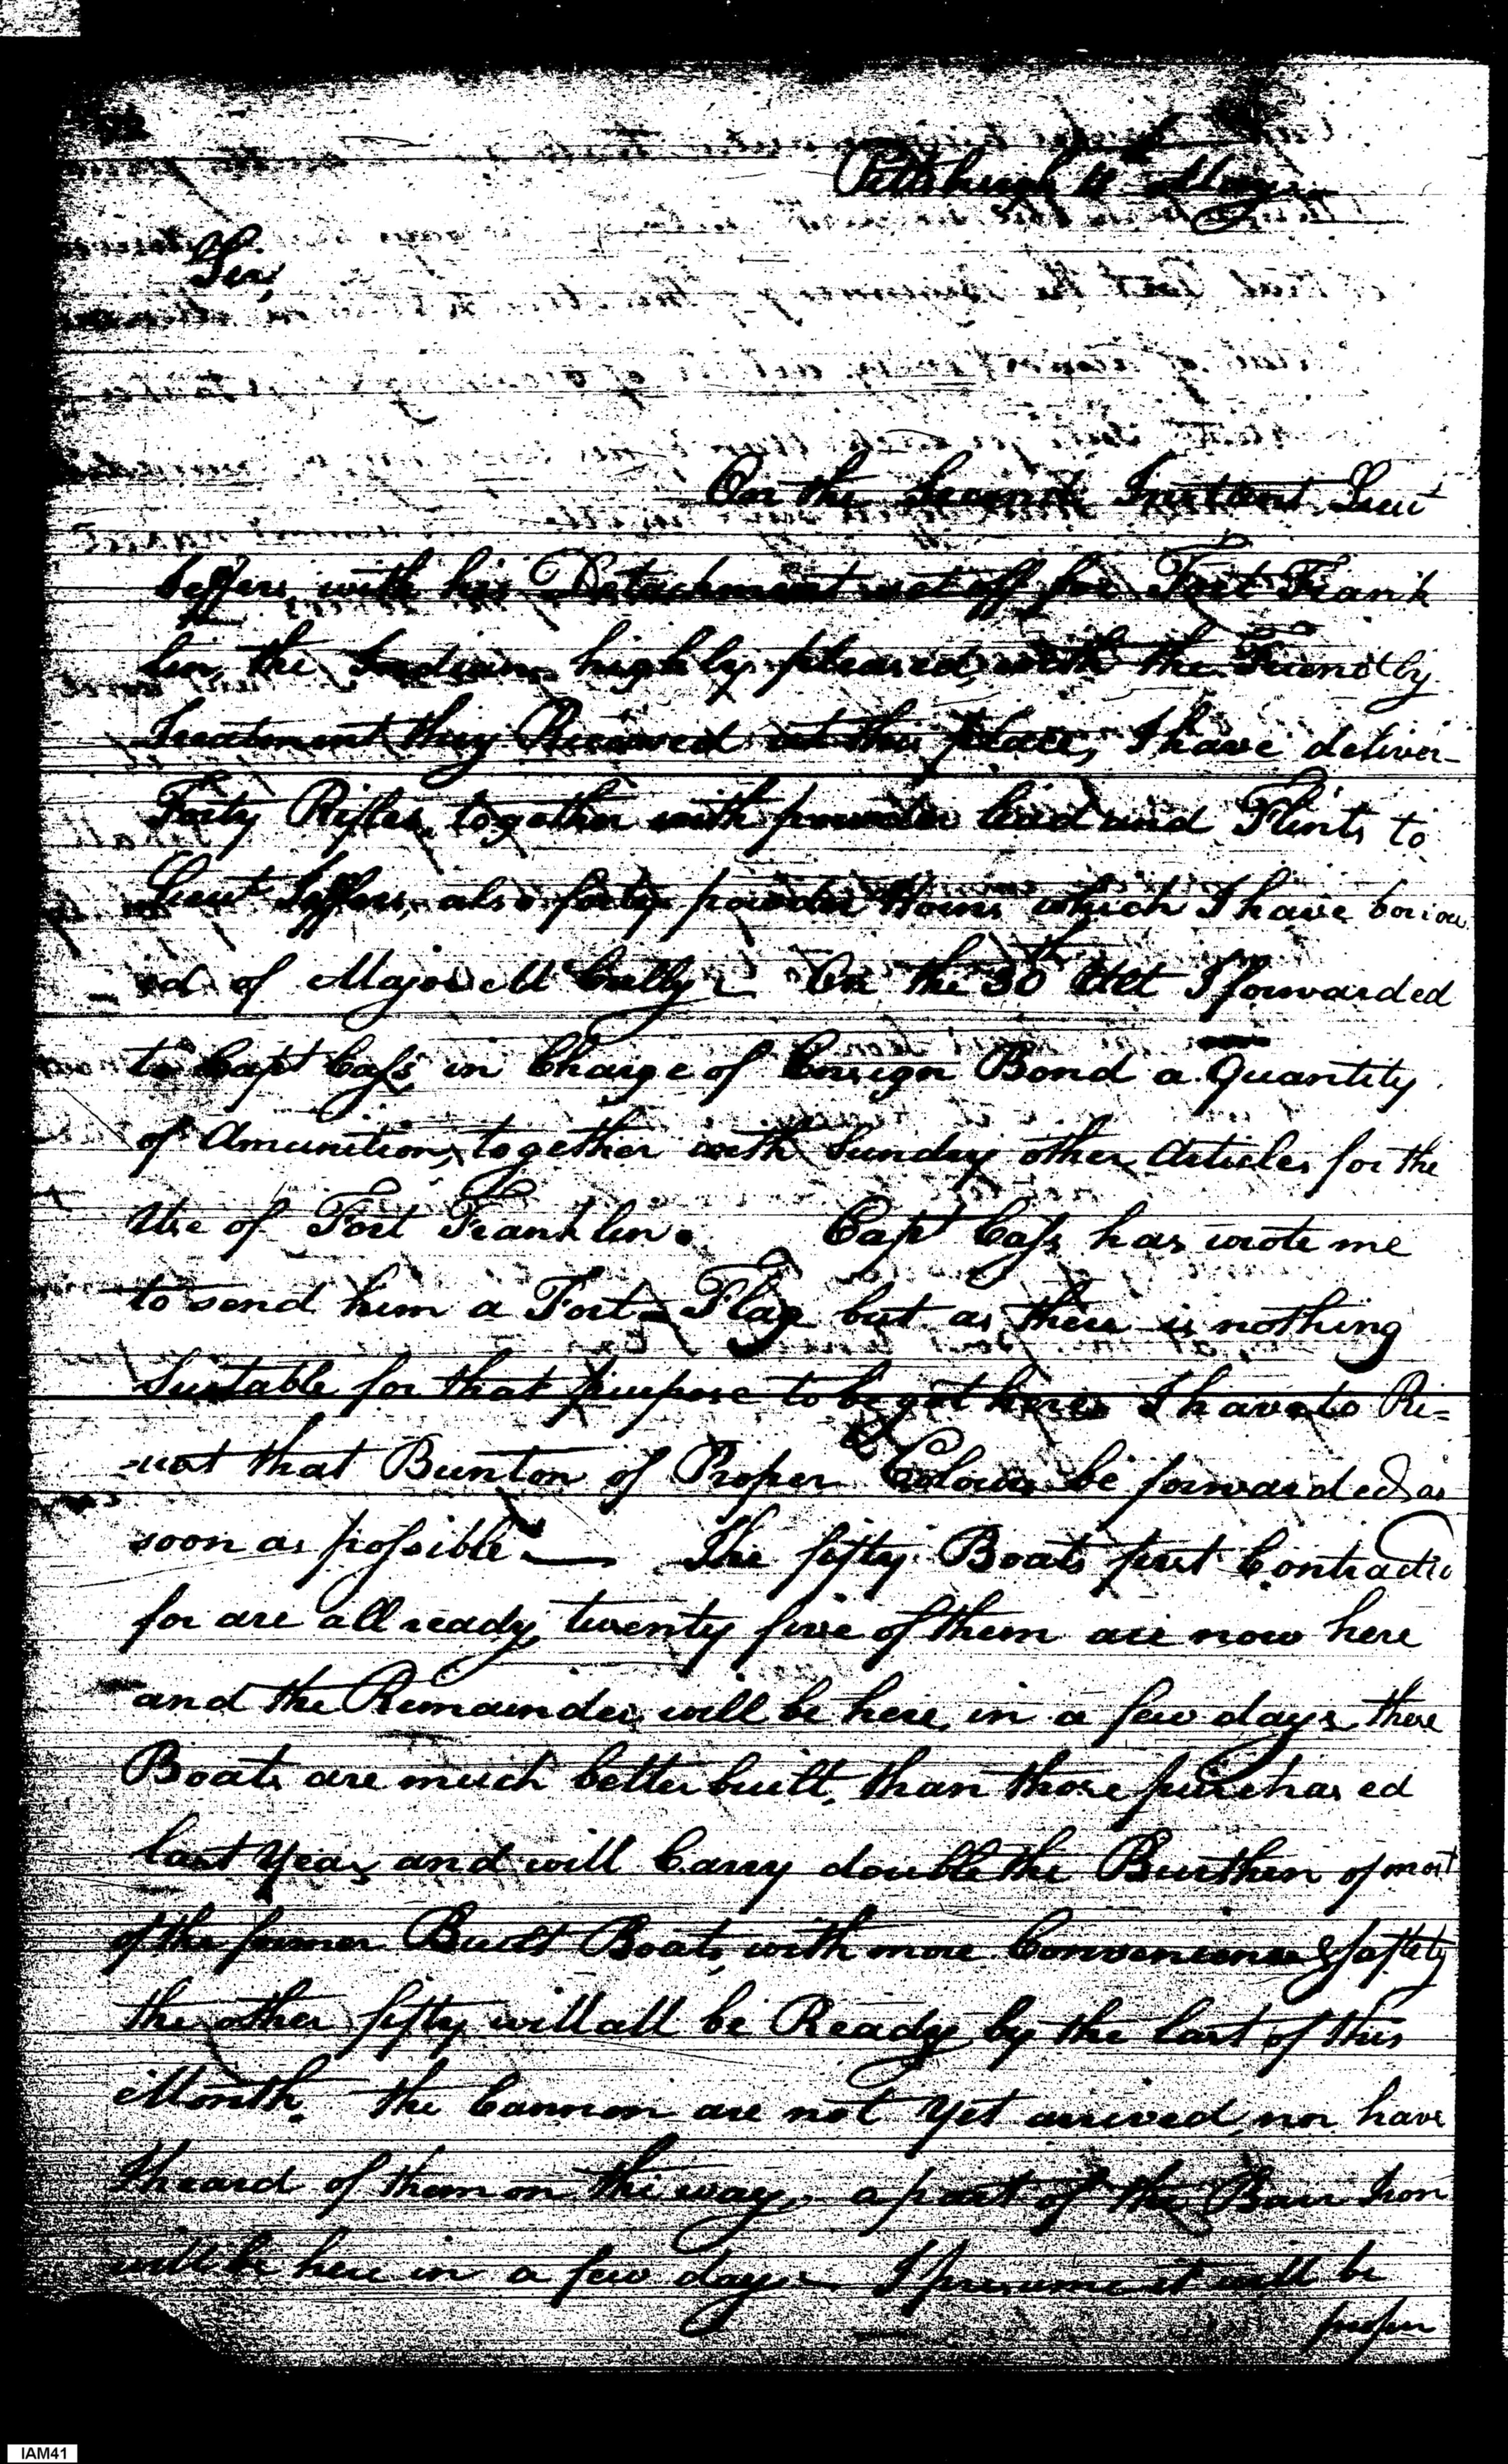 Pittsburgh 4 May
Sir,
On the Second Instant Lieut
Jeffers with his Detachment set off for Fort Frank
lin, the Indians highly pleased, with the Friendly
Treatment they Received at this place, I have deliver-
Forty Rifles, together with powder lead and Flints to
Lieut Jeffers, also forty powder Horns which I have borrow
ed of Major McCully — On the 30th Ult I forwarded
to Capt Cass in Charge of Ensign Bond a Quantity
of Amunition, together with Sundry other Articles for the
Use of Fort Franklin. Capt Cass has wrote me
to send him a Fort-Flag but as there is nothing
Suitable for that purpose to be got here I have to Re=
-uest that Bunton of Proper Colours be forwarded as
soon as possible — The fifty Boats first Contracted
for are all ready, twenty five of them are now here
and the Remainder will be here in a few days, these
Boats are much better built, than those purchased
last Year, and will Carry double the Burthen of most
of the former Built Boats, with more Convenience & saftety
the other fifty will all be Ready by the last of this
Month. the Cannon are not Yet arrived, nor have
I heard of them on the way, a part of the Barr Iron
will be here in a few days — I presume it will be
proper
IAM41